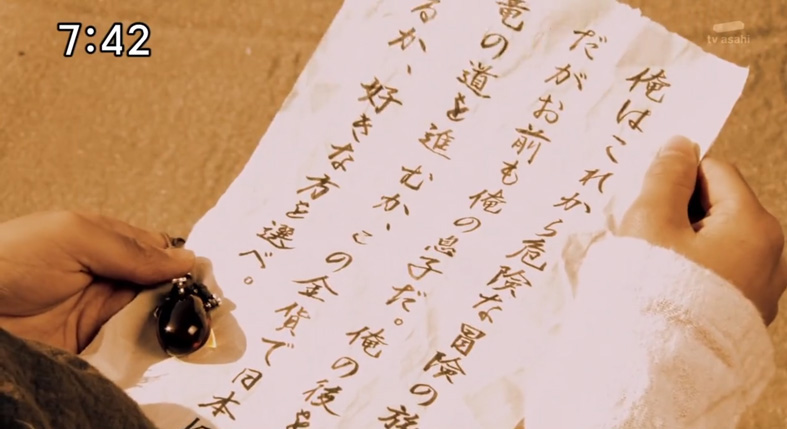 7:42
tv asahi
俺はこれから危険な冒険の旅
だがお前も俺の息子だ。俺の後を
竜の道を進むか、この金貨で日本
るか、好きな方を選べ。